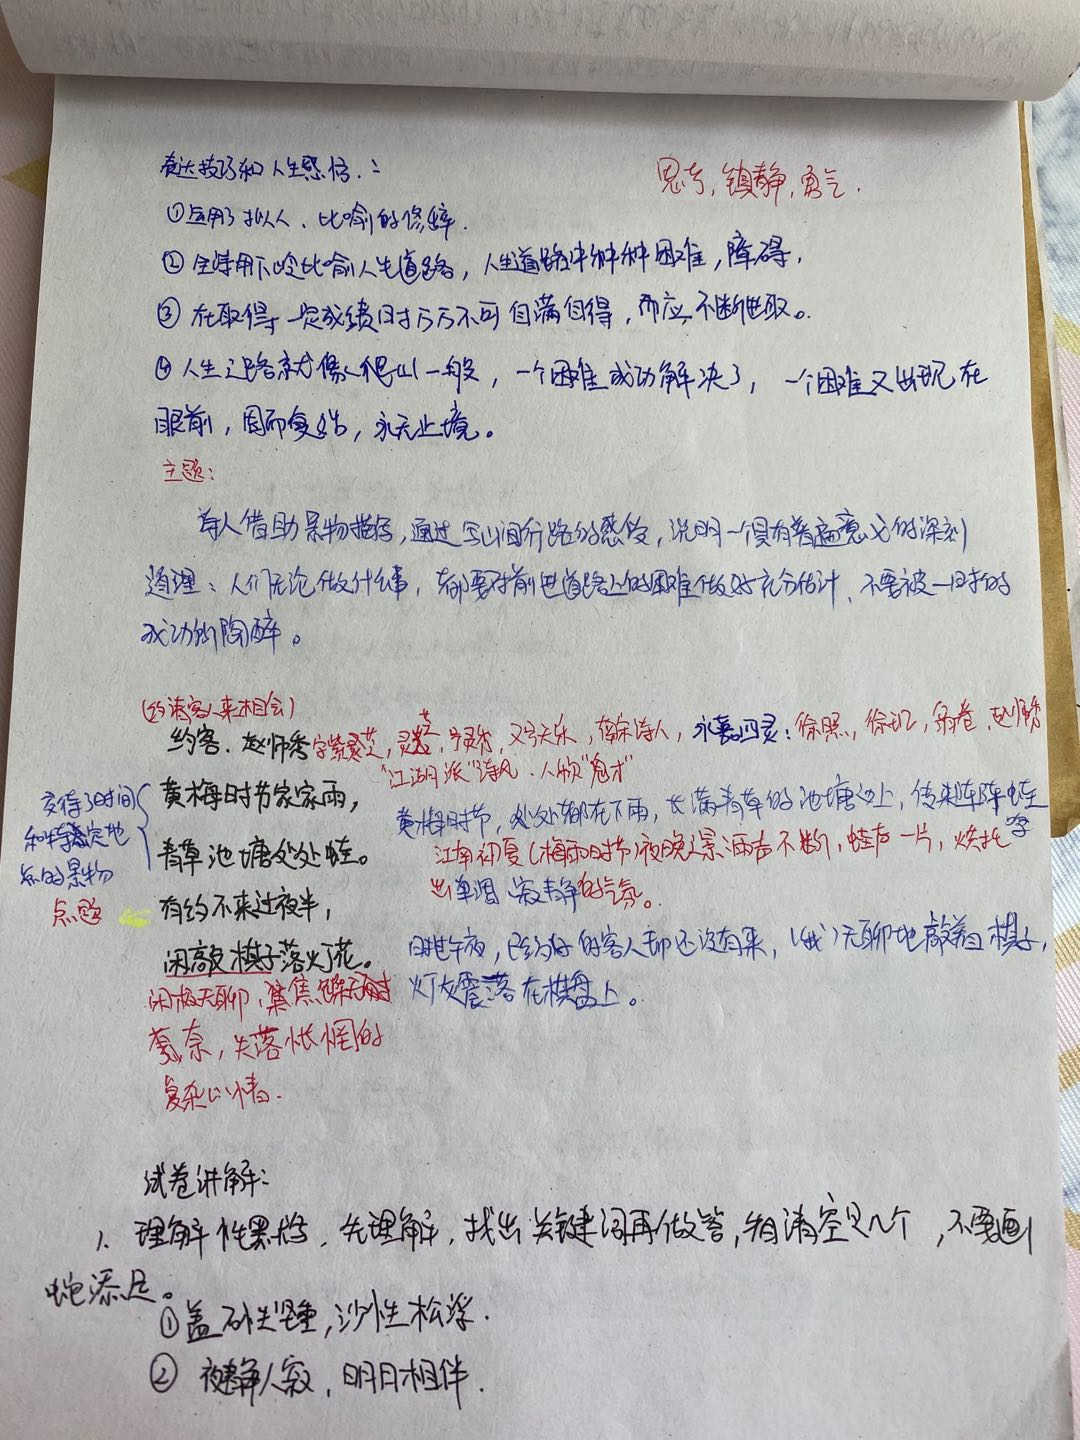 表达技巧和人生感悟:
思考,镇静,勇气.
①运用了拟人、比喻的修辞.
② 全诗用下岭比喻人生道路,人生道路中种种困难,障碍.
③ 在取得一定成绩时万万不可自满自得,而应不断进取。
④ 人生之路就像爬山一般,一个困难成功解决了,一个困难又出现在
眼前,周而复始,永无止境。
主题:
诗人借助景物描写,通过写山间行路的感受,说明一个具有普遍意义的深刻
道理:人们无论做什么事,都要对前进道路上的困难做好充分估计、不要被一时的
成功所陶醉。
(约请客人来相会)
约客.赵师秀字紫芝,灵芝,号灵秀,又号天乐,南宋诗人,永嘉四灵:徐照,徐玑,翁卷,赵师秀
"江湖派"诗风.人称"鬼才"
黄梅时节家家雨,
青草池塘处处蛙。
有约不来过夜半,
闲敲棋子落灯花。
交待了时间
和特定地
点的景物
点题
黄梅时节,处处都在下雨,长满青草的池塘边上,传来阵阵蛙
江南初夏(梅雨时节)夜晚之景雨声不断,蛙声一片,烘托
出单调寂静的气氛。
时过午夜,已约好的客人却还没有来,(我)无聊地敲着棋子,
灯灰震落在棋盘上。
闲极无聊,
奈,失落怅惘的
复杂心情.
试卷讲解:
1. 理解性默写,先理解,找出关键词再做答,看清空只几个,不要画
蛇添足。
①盖石性坚重,沙性松浮.
② 夜静人寂,明月相伴.